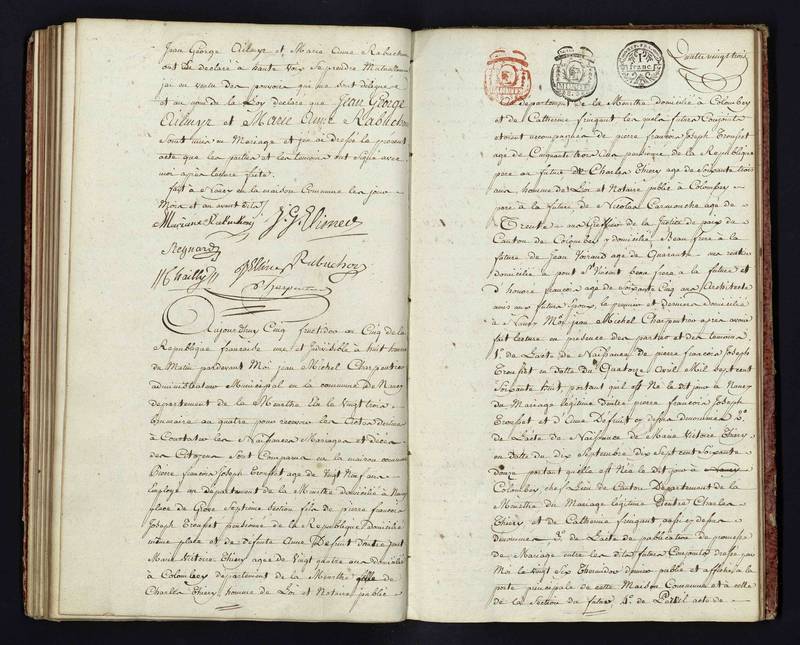 Jean George Ailmyr et Marie Anne Rabuchon
ont declaré à haute voix se prendre mutuellement
j'ai en vertu des pouvoirs qui me sont délégués
et au nom de la Loy declaré que Jean George
Ailmyr et Marie Anne Rabuchon
sont unis en Mariage et j'ai dressé le present
acte que les parties et les temoins ont signé avec
moi après lecture faite
fait à Nancy en la maison Commune les jour
Mois et an avant dits
Marianne Rabuchon J. G.
Regnard
Chailly Rabuchon
Charpentier
Aujourd'huy Cinq fructidor an Cinq de la
Republique française une et indivisible à huit heures
du Matin pardevant Moi jean Michel Charpentier
administrateur Municipal en la commune de Nancy
departement de la Meurthe élu le vingt trois
brumaire an quatre pour recevoir les Actes destinés
à Constater les Naissances Mariages et Décès
des Citoyens sont Comparus en la maison commune
Pierre françois Joseph Trousset age de Vingt Neuf ans
Employé au departement de la Meurthe domicilié à Nancy
place de Greve Septieme Section fils de pierre françois
Joseph Trousset pensionné de la Republique domicilié
même place et de defunte Anne Defruit d'autre part
Marie Victoire Thiery agée de vingt quatre ans domiciliée
à Colombey departement de la Meurthe fille de
Charles Thiery homme de Loi et Notaire public
Quatre vingt trois
1 franc
au departement de la Meurthe domicilié à Colombey
et de Catherine fringant les quels futurs Conjoints
etoient accompagnés de pierre françois Joseph Trousset
age de Cinquante trois ans pensionné de la Republique
pere au futur de Charles Thiery age de Soixante trois
ans homme de Loi et Notaire public à Colombey
pere à la future de Nicolas age de
Trente ans Greffier de la Justice de paix du
Canton de Colombey y domicilié Beau frere à la
future de Jean age de Quarante ans
domicilié à pont St Vincent beau frere à la future et
d'honoré françois age de soixante Cinq ans Architecte
amis aux futurs Epoux, le premier et dernier domiciliés
à Nancy Moi jean Michel Charpentier après avoir
fait lecture en presence des parties et des temoins.
1°. de L'acte de Naissance de pierre françois Joseph
Trousset en datte du Quatorze Avril Mil sept cent
soixante huit portant qu'il est Né le dit jour à Nancy
du Mariage légitime d'entre pierre françois Joseph
Trousset et d'Anne Defruit cy dessus denommés 2°.
de L'acte de Naissance de Marie Victoire Thiery
en datte du dix Septembre dix Sept cent soixante
douze portant qu'elle est Née le dit jour à Nancy
Colombey, chef Lieu de Canton Departement de la
Meurthe du Mariage légitime D'entre Charles
Thiery et de Catherine fringant aussi cy dessus
denommés 3°. de L'acte de publication de promesse
de Mariage entre les dits futurs Conjoints dressé par
Moi le vingt Six Thermidor dernier publié et affiché à la
porte principale de cette Maison Commune et à celle
de la Section du futur 4°. de L'acte de